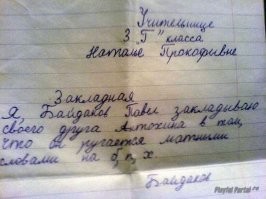 Учительнице
3 "Г" класса
Наталье Прокофивне
Закладная
Я, Байдаков Павел закладываю
своего друга Антохина в том,
что он ругается матными
словами на б, п, х.
Байдаков
Playful Portal.ru